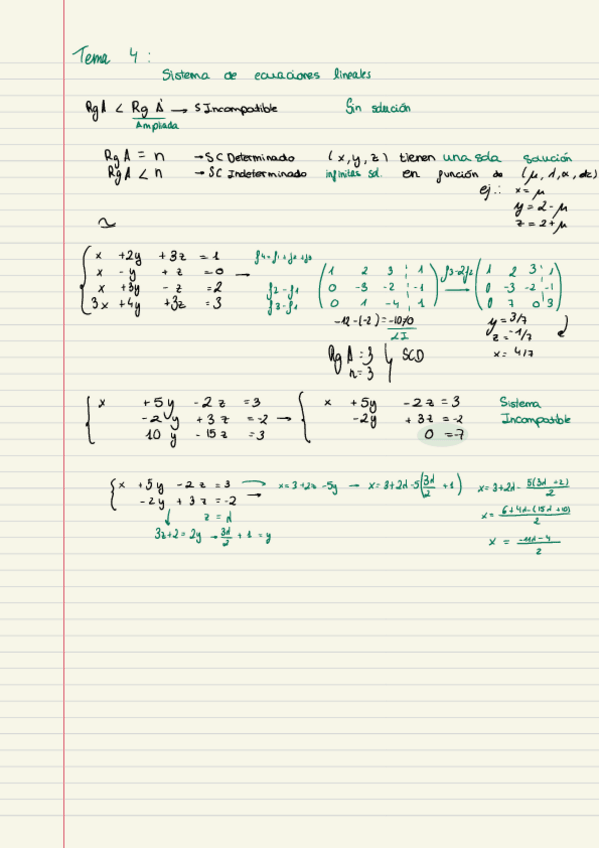 Tema 4 :
Sistema de ecuaciones lineales
RgA < Rg A' → S Incompatible Sin solución
Ampliada
Rg A = n → SC Determinado (x, y, z) tienen una sola solución
Rg A < n → SC Indeterminado infinitas sol. en función de (μ, λ, α, etc)
ej.: x = μ
y = 2 - μ
z = 2 + μ
x + 2y + 3z = 1
x - y + z = 0
x + 3y - z = 2
3x + 4y + 3z = 3
f4 = f1 + f2 + f3
f2 - f1
f3 - f1
1 2 3 1
0 -3 -2 -1
0 1 -4 1
f3 - 2f2
1 2 3 1
0 -3 -2 -1
0 7 0 3
-12 - (-2) = -10 ≠ 0
LI
y = 3/7
z = -1/7
x = 4/7
Rg A = 3
n = 3
SCD
x + 5y - 2z = 3
-2y + 3z = -2
10y - 15z = 3
→
x + 5y - 2z = 3
-2y + 3z = -2
0 = -7
Sistema
Incompatible
x + 5y - 2z = 3 → x = 3 + 2z - 5y → x = 3 + 2λ - 5(3λ/2 + 1) x = 3 + 2λ - 5(3λ + 2)/2
-2y + 3z = -2 →
z = λ
3z + 2 = 2y → 3λ/2 + 1 = y
x = 6 + 4λ - (15λ + 10)/2
x = -11λ - 4/2